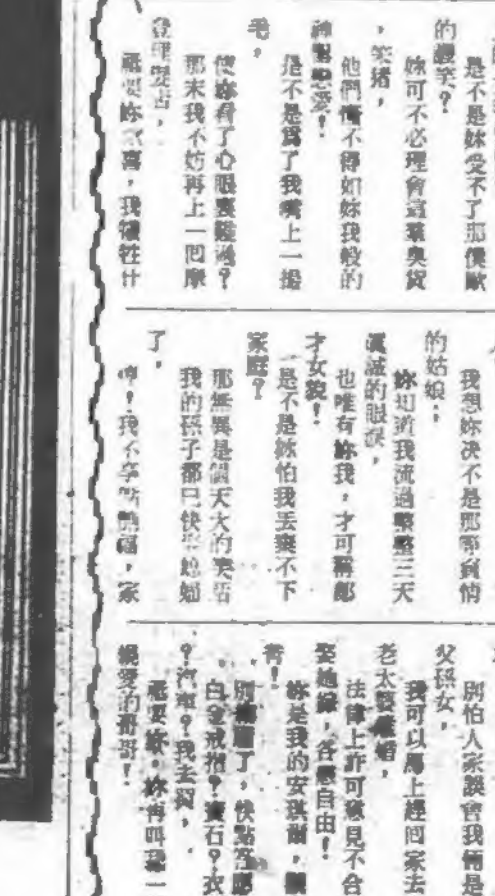 是不是妹受不了那儍歐
的謾笑？
妳可不必理會這羣臭貨
，笑猪，
他們懂不得如妹我般的
神聖戀愛！
是不是爲了我嘴上一撮
毛，
使妳看了心眼裏難過？
那末我不妨再上一囘摩
登理髮店，
祗要妳歡喜，我犧牲什
我想妳决不是那
的姑娘；
妳知道我流過整整三天
眞誠的眼淚，
也唯有妳我，才可稱郎
才女貌！
是不是妳怕我丢棄不下
家庭？
那無異是個天大的笑話
我的孫子都已快
了，
呷！我不享點艷福，家
別怕人家誤會我倆是
父孫女，
我可以馬上趕囘家去
老太婆離婚，
法律上許可意見不合
娶她嫁，各聽自由！
妳是我的安琪爾，
別 了，快點答應
白金戒指？寶石？衣
？汽車？我去買，
祗要妳，妳再叫我一
親愛的哥哥！